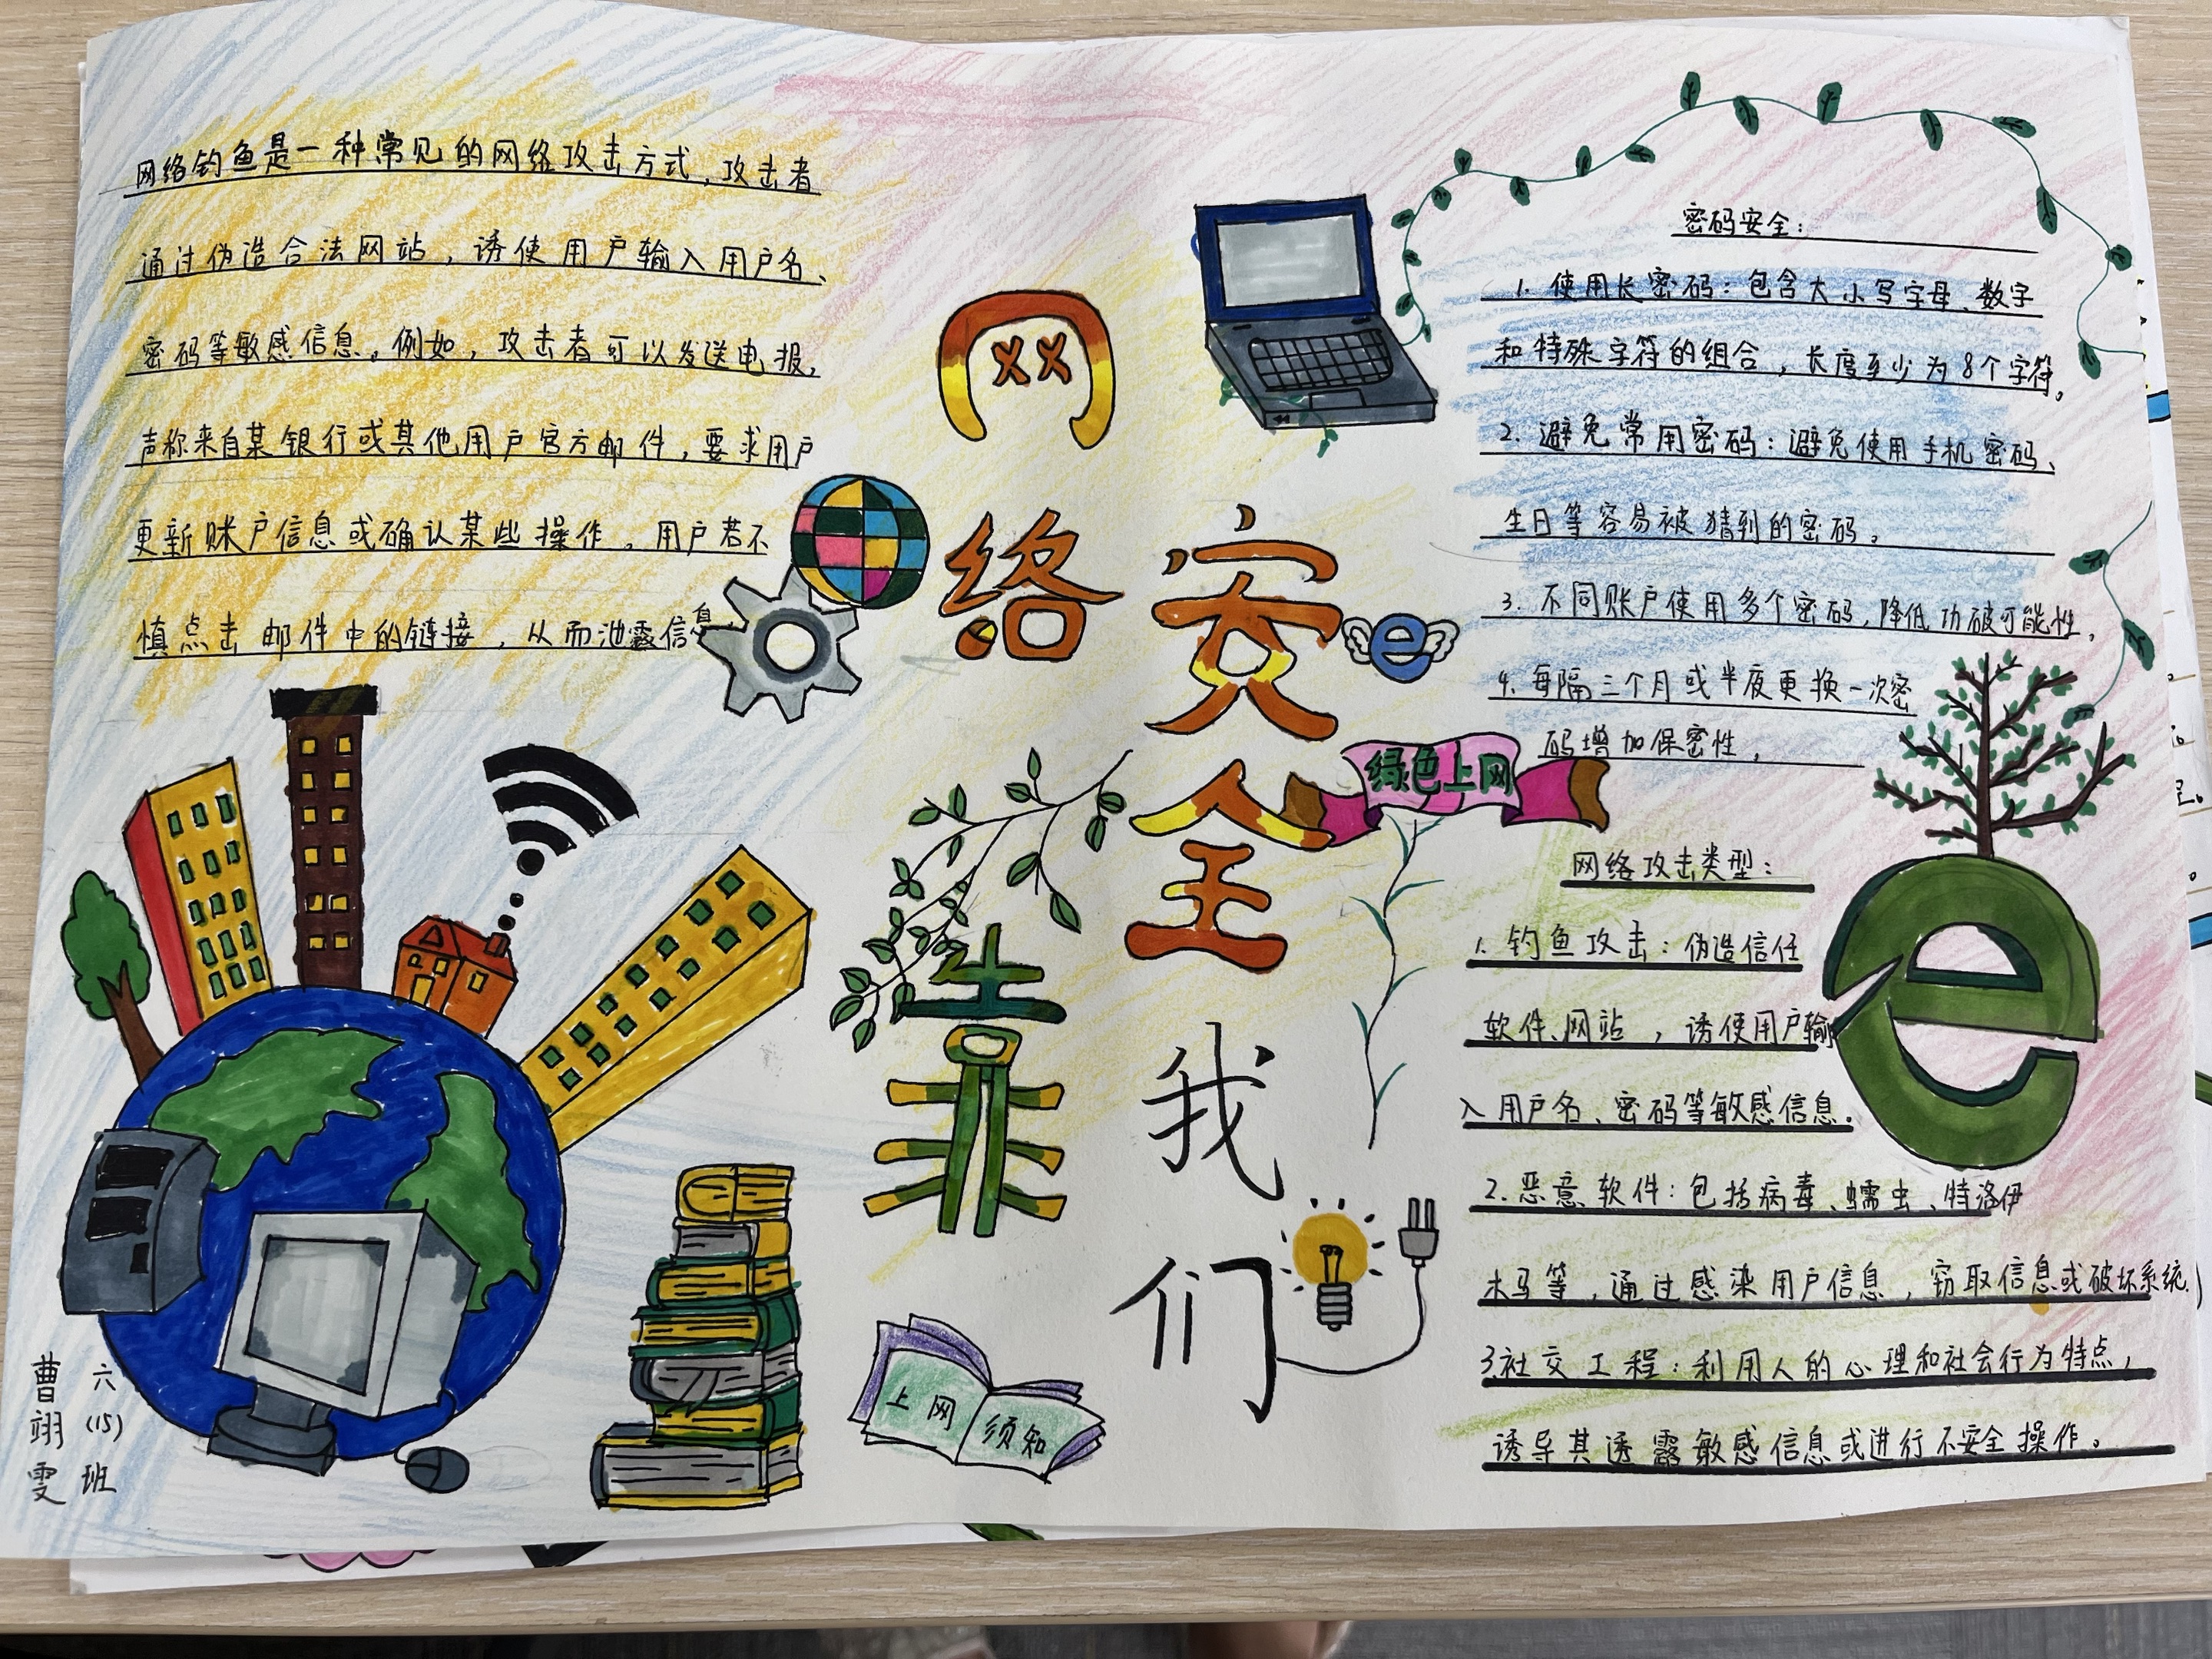 网络钓鱼是一种常见的网络攻击方式，攻击者
通过伪造合法网站，诱使用户输入用户名、
密码等敏感信息。例如，攻击者可以发送电报，
声称来自某银行或其他用户官方邮件，要求用户
更新账户信息或确认某些操作。用户若不
慎点击邮件中的链接，从而泄露信息。
网络安全靠我们
绿色上网
上网须知
密码安全：
1. 使用长密码：包含大小写字母、数字
和特殊字符的组合，长度至少为8个字符。
2. 避免常用密码：避免使用手机密码、
生日等容易被猜到的密码。
3. 不同账户使用多个密码，降低功破可能性。
4. 每隔三个月或半夜更换一次密
码增加保密性。
网络攻击类型：
1. 钓鱼攻击：伪造信任
软件、网站，诱使用户输
入用户名、密码等敏感信息。
2. 恶意软件：包括病毒、蠕虫、特洛伊
木马等，通过感染用户信息，窃取信息或破坏系统
3.社交工程：利用人的心理和社会行为特点，
诱导其透露敏感信息或进行不安全操作。
六(15)班
曹翊雯